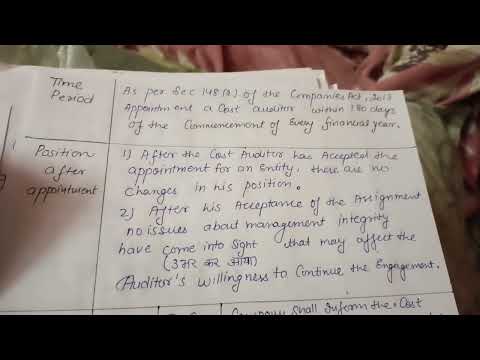 Time
Period
As per Sec 148(3) of the Companies Act, 2013
Appointment a Cost auditor within 180 days
of the Commencement of Every financial year.
Position
after
appointment
1) After the Cost Auditor has Accepted the
appointment for an Entity, there are no
Changes in his position.
2) After his Acceptance of the Assignment
no issues about management integrity
have come into Sight that may affect the
(उभर कर आया)
Auditor's willingness to Continue the Engagement.
Company Shall inform the Cost